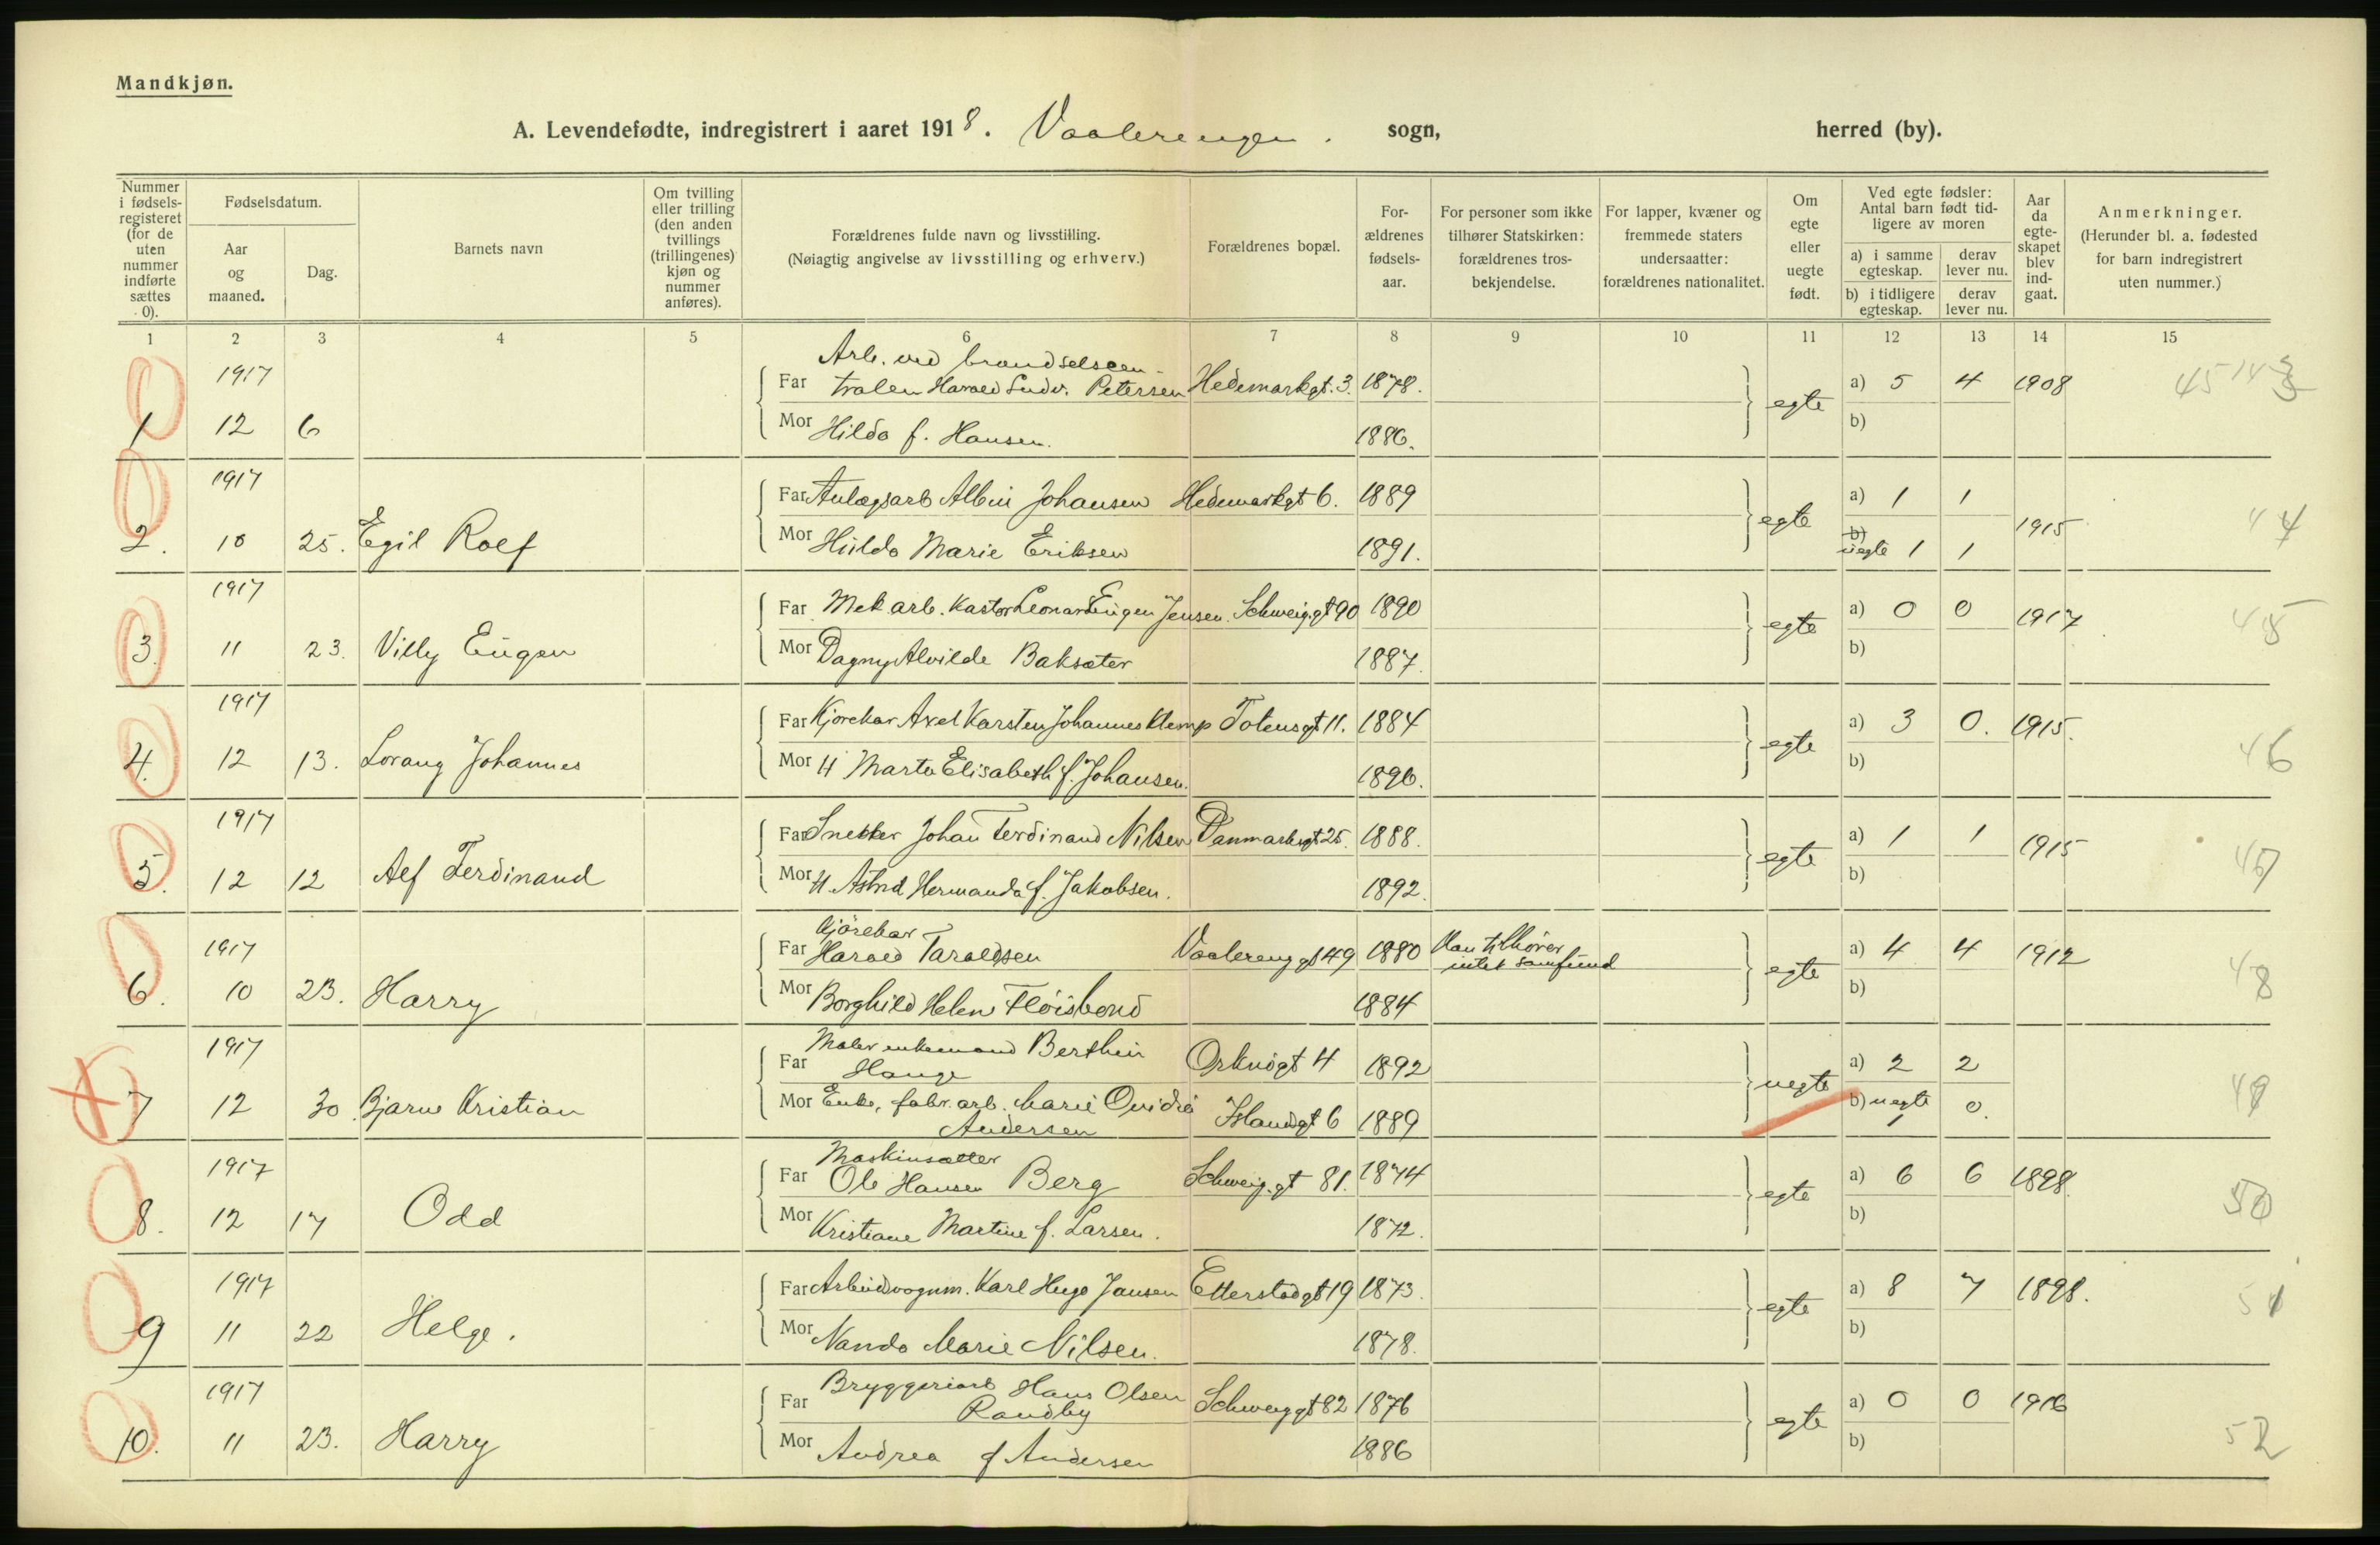 Mandkjøn.
A. Levendefødte, indregistrert i aaret 1918. Vaalerengen. sogn, herred (by).
Nummer i fødsels-registeret (for de uten nummer indførte sættes 0).
Fødselsdatum.
Aar og maaned.
Dag.
Barnets navn
Om tvilling eller trilling (den anden tvillings (trillingenes) kjøn og nummer anføres).
Forældrenes fulde navn og livsstilling.
(Nøiagtig angivelse av livsstilling og erhverv.)
Forældrenes bopæl.
For-ældrenes fødsels-aar.
For personer som ikke tilhører Statskirken: forældrenes tros-bekjendelse.
For lapper, kvæner og fremmede staters undersaatter: forældrenes nationalitet.
Om egte eller uegte født.
Ved egte fødsler: Antal barn født tid-ligere av moren
a) i samme egteskap. derav lever nu.
b) i tidligere egteskap. derav lever nu.
Aar da egte-skapet blev ind-gaat.
Anmerkninger.
(Herunder bl. a. fødested for barn indregistrert uten nummer.)
1 2 3 4 5 6 7 8 9 10 11 12 13 14 15
Arb. ved brændselscen-
1917 Far tralen Harald Ludv. Petersen Hedemarkgt. 3. 1878. a) 5 4 1908
1 12 6 Mor Hilda f. Hansen. 1886. egte b)
1917 Far Anlægsarb Albin Johansen Hedemarkgt 6. 1889 a) 1 1 44
2. 10 25. Egil Rolf Mor Hilda Marie Eriksen 1891. egte b) uegte 1 1 1915
1917 Far Mek. arb. Kastor Leonard Eugen Jensen. Schweig.gt 90 1890 a) 0 0 1917 45
3. 11 23. Villy Eugen Mor Dagny Alvilde Baksæter 1887. egte b)
1917 Far Kjørekar Axel Karsten Johannes Klemp Totensgt 11. 1884 a) 3 0. 1915. 46
4. 12 13. Lorang Johannes Mor H Marta Elisabeth f. Johansen. 1896. egte b)
1917 Far Snekker Johan Ferdinand Nilsen Danmarksgt 25. 1888. a) 1 1 1915 47
5. 12 12 Alf Ferdinand Mor H. Astrid Hermanda f. Jakobsen. 1892. egte b)
Kjørekar
1917 Far Harald Taraldsen Vaalerenggt 49 1880 Han tilhører intet samfund a) 4 4 1912 48
6. 10 23. Harry Mor Borghild Helene Fløisbond 1884 egte b)
Maler enkemand Berthin
1917 Far Hauge Orknøgt 4 1892 a) 2 2 49
7 12 30. Bjarne Kristian Mor Enke, fabr. arb. Marie Ovidia Andersen Islandsgt 6 1889 uegte b) uegte 1 0.
Maskinsætter
1917 Far Ole Hansen Berg Schweig.gt 81. 1874 a) 6 6 1898. 50
8. 12 17 Odd Mor Kristiane Martine f. Larsen. 1872. egte b)
1917 Far Arbeidsvognm. Karl Hugo Jansen Etterstadgt 19 1873. a) 8 7 1898. 51
9 11 22 Helge. Mor Nanda Marie Nilsen. 1878. egte b)
Bryggeriarb Hans Olsen
1917 Far Randby Schweiggt 82 1876 a) 0 0 1916 52
10. 11 23. Harry Mor Andrea f Andersen 1886 egte b)